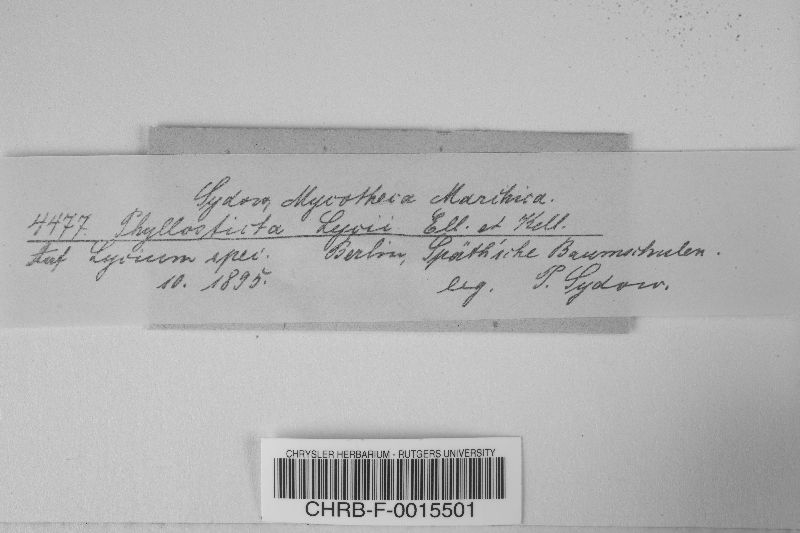 Sydow, Mycotheca Marchica.
4477. Phyllosticta Lycii Ell. et Kell.
Auf Lycium spec. Berlin, Späth'sche Baumschulen.
10. 1895. leg. P. Sydow.
CHRYSLER HERBARIUM - RUTGERS UNIVERSITY
CHRB-F-0015501